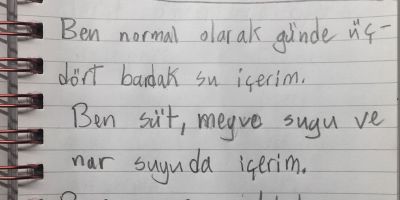 Ben normal olarak günde üç-
dört bardak su içerim.
Ben süt, meyve sugu ve
nar suyu da içerim.